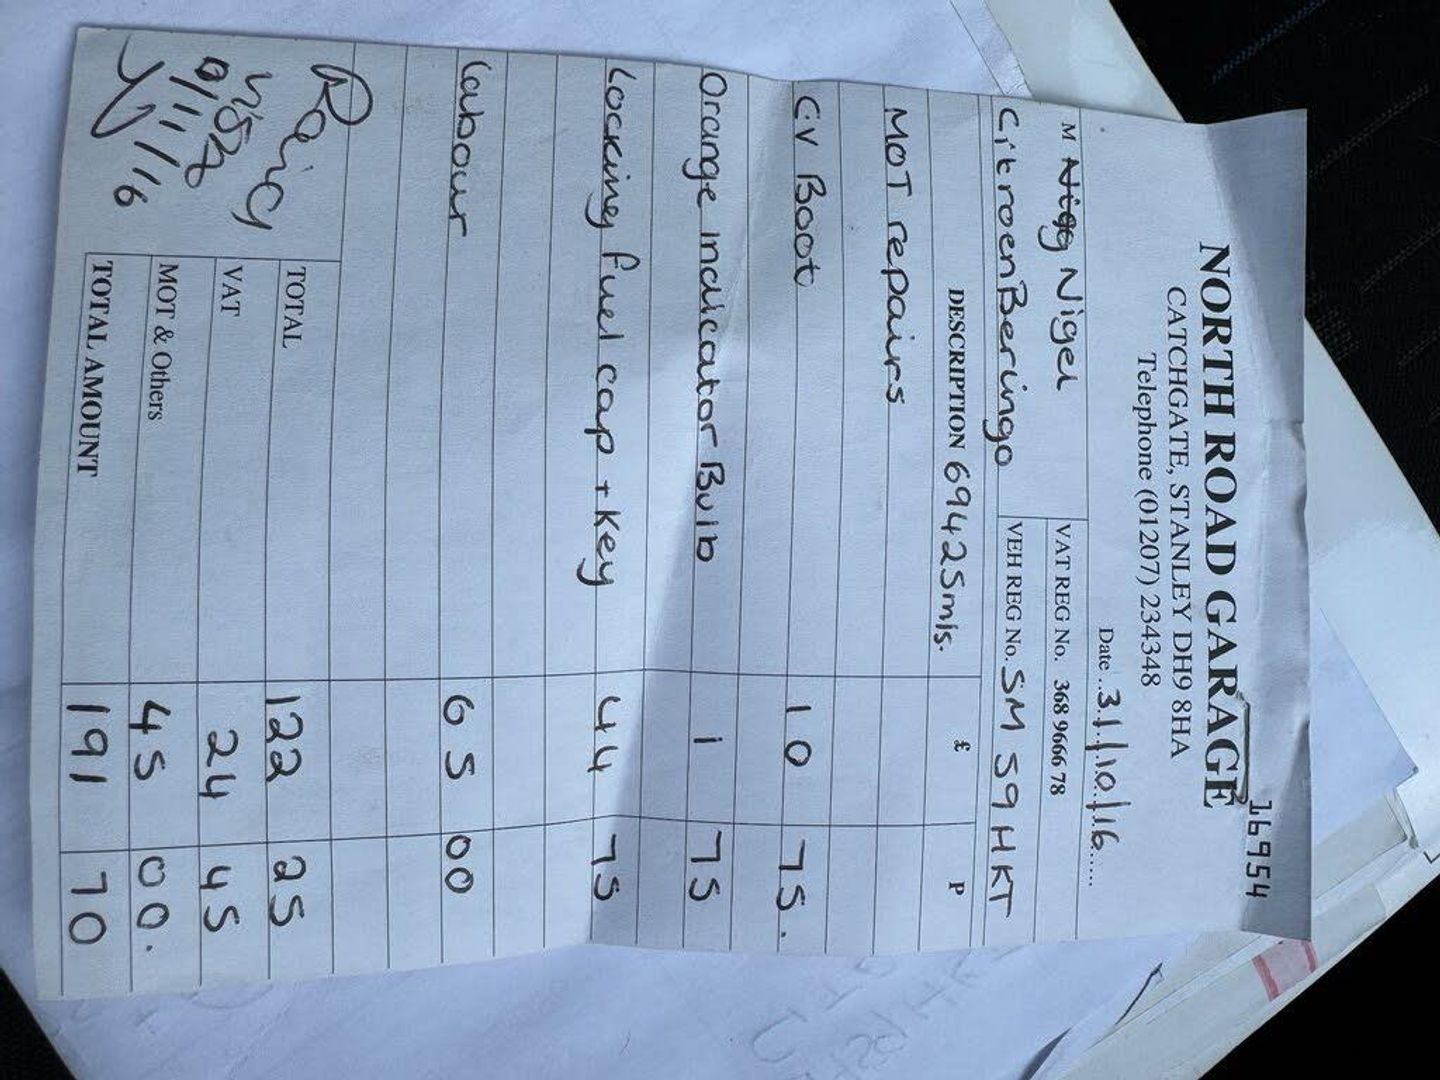 16954
NORTH ROAD GARAGE
CATCHGATE, STANLEY DH9 8HA
Telephone (01207) 234348
Date ..31/10/16.....
M Nigel
VAT REG No. 368 9666 78
Citroen Beringo
VEH REG No. SM 59 HKT
DESCRIPTION 69425mls. £ P
MOT repairs
CV Boot 10 75.
Orange indicator Bulb 1 75
Locking fuel cap + Key 44 75
Labour 65 00
TOTAL 122 25
VAT 24 45
MOT & Others 45 00.
TOTAL AMOUNT 191 70
Paid
1/11/16